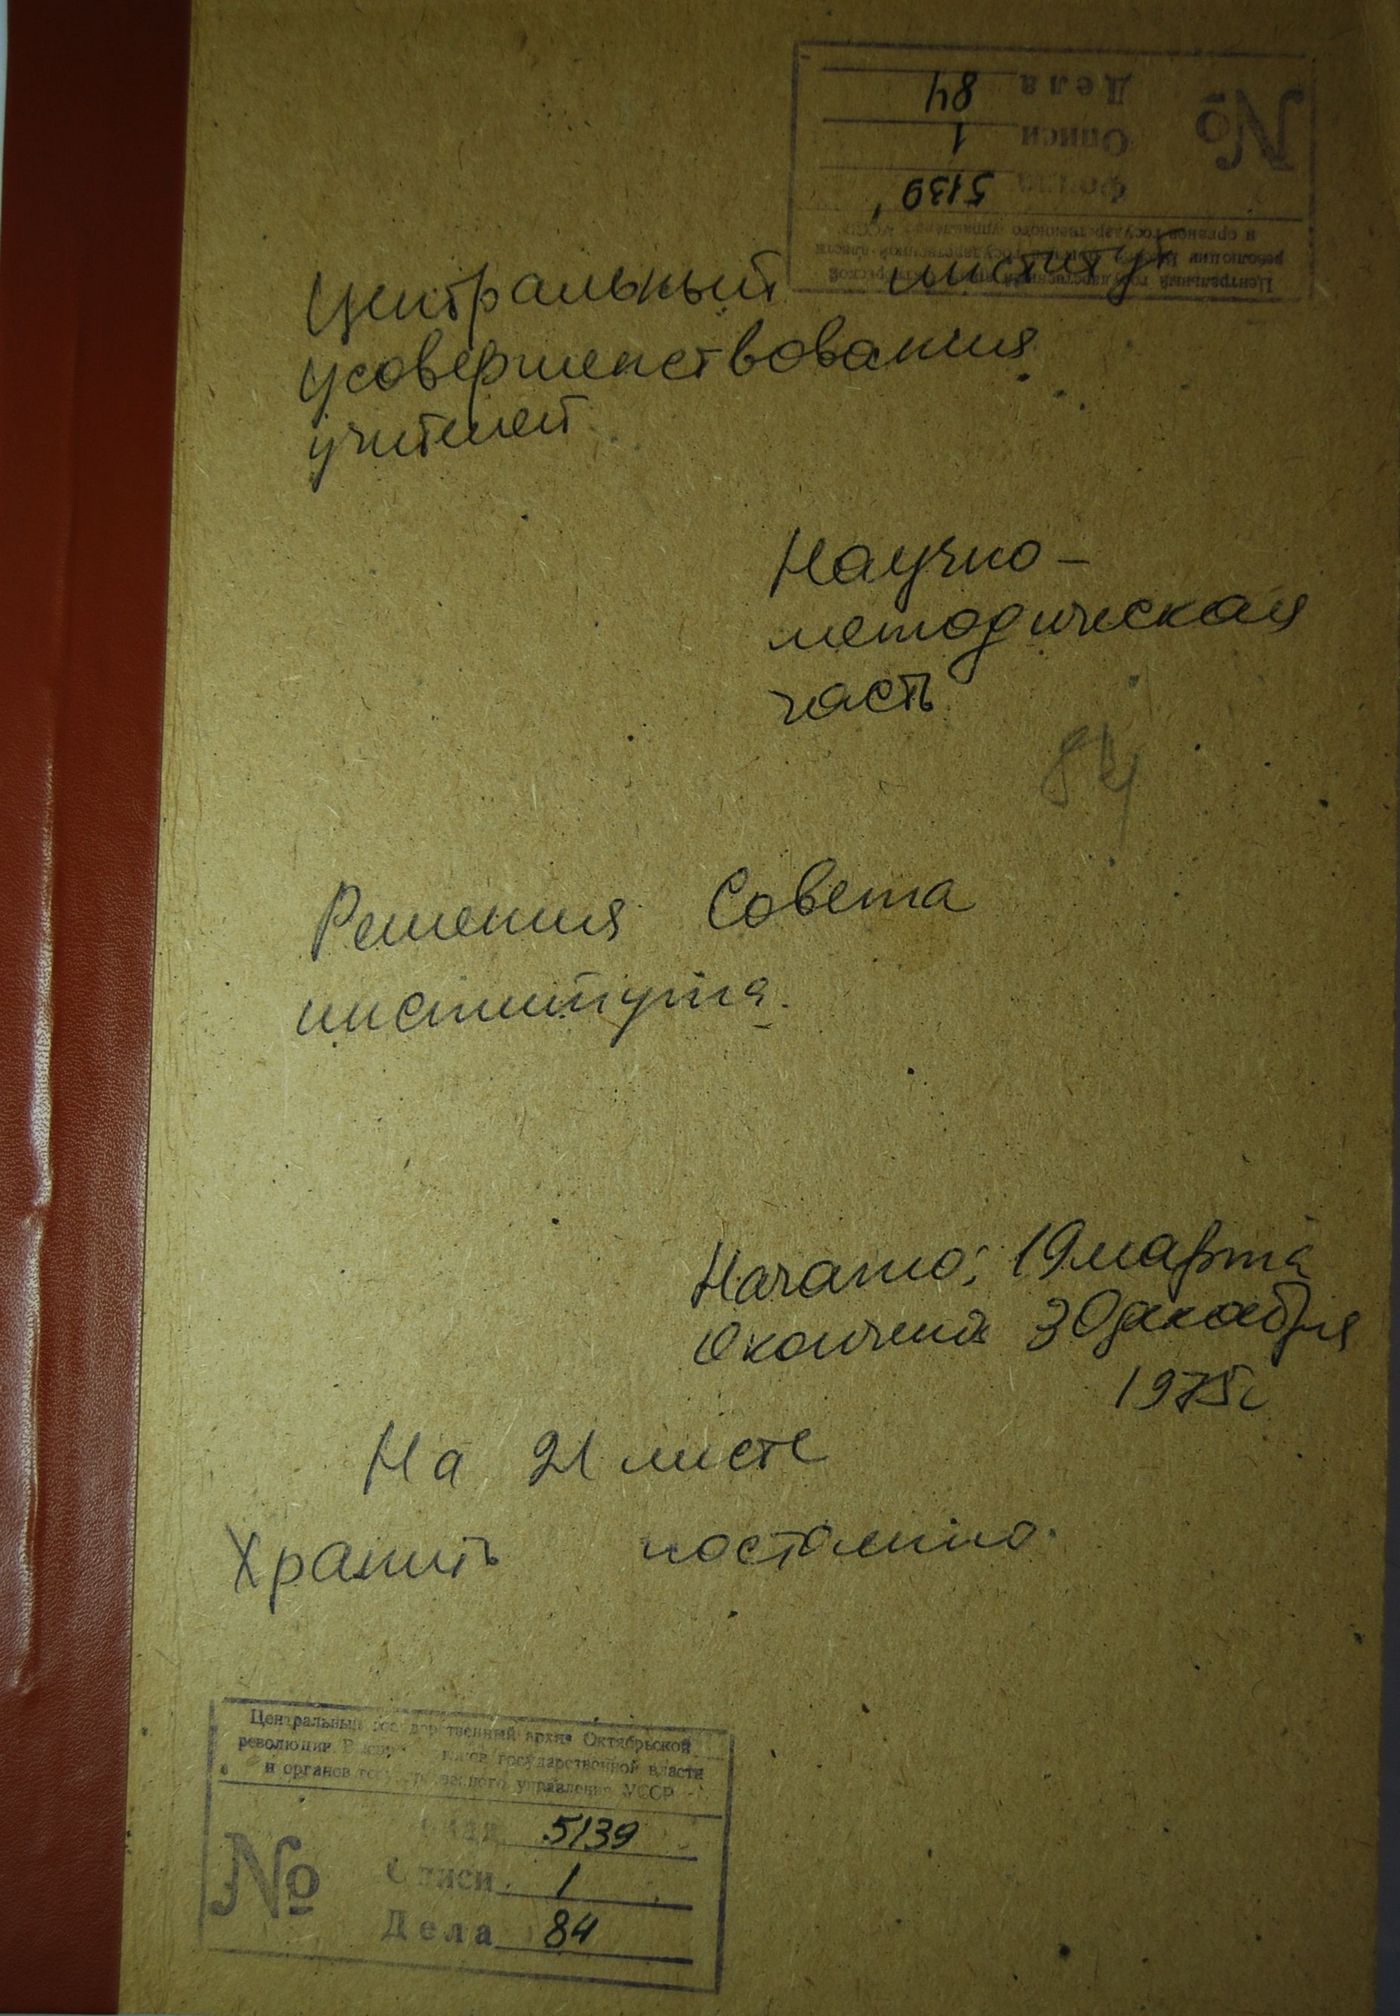 Центральный государственный архив Октябрьской
революции Высших органов государственной власти
и органов государственного управления УССР
Фонда 5139
Описи 1
Дела 84
№
Центральный институт
усовершенствования
учителей
Научно-
методическая
часть
84
Решения Совета
института.
Начато: 19 марта
Окончена 30 декабря
1975г
На 21 листе
Хранить постоянно.
Центральный государственный архив Октябрьской
революции Высших органов государственной власти
и органов государственного управления УССР
№
Фонда 5139
Описи 1
Дела 84